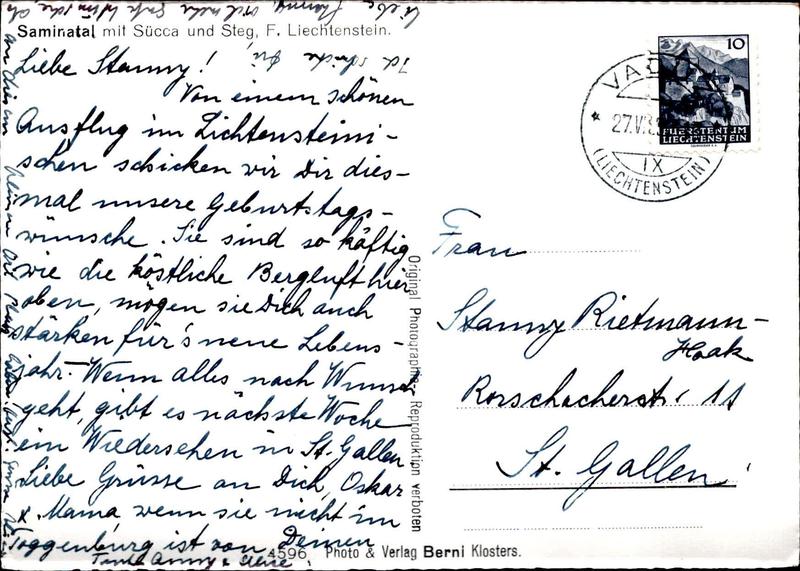 Saminatal mit Sücca und Steg, F. Liechtenstein.
Liebe Stanny!
Von einem schönen
Ausflug im Lichtensteini-
schen schicken wir Dir dies-
mal unsere Geburtstags-
wünsche. Sie sind so käftig
wie die köstliche Bergluft hier
oben, mögen sie Dich auch
stärken für's neue Lebens-
jahr. Wenn alles nach Wunsch
geht, gibt es nächste Woche
ein Wiedersehen in St. Gallen
Liebe Grüsse an Dich, Oskar
x. Mama wenn sie nicht im
Toggenburg ist von Deinen
Tante Anny &
4596 Photo & Verlag Berni Klosters.
Original Photographie. Reproduktion verboten
10
FUERSTENTUM
LIECHTENSTEIN
VADUZ
27.V.
IX
(LIECHTENSTEIN)
Frau
Stanny Rietmann-
Haak
Rorschacherstr. 11
St. Gallen
Liebe Stanny
Ich schicke Dir